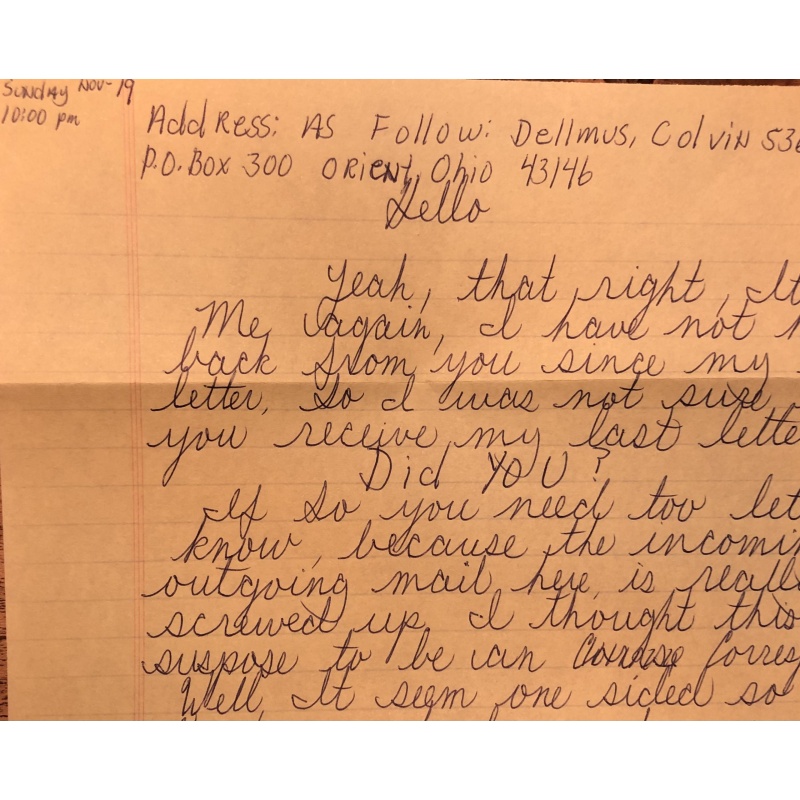 Sunday Nov-19
10:00 pm
Address: As Follow: Dellmus, Colvin 536
P.O. Box 300 Orient, Ohio 43146
Hello
Yeah, that right, It
Me again, I have not
back from you since my
letter. So I was not sure
you receive my last lette
Did You?
If So you need too let
know, because the incomin
outgoing mail here, is reall
screwed up. I thought this
suspose to be an Corres
Well, It seem one sided so